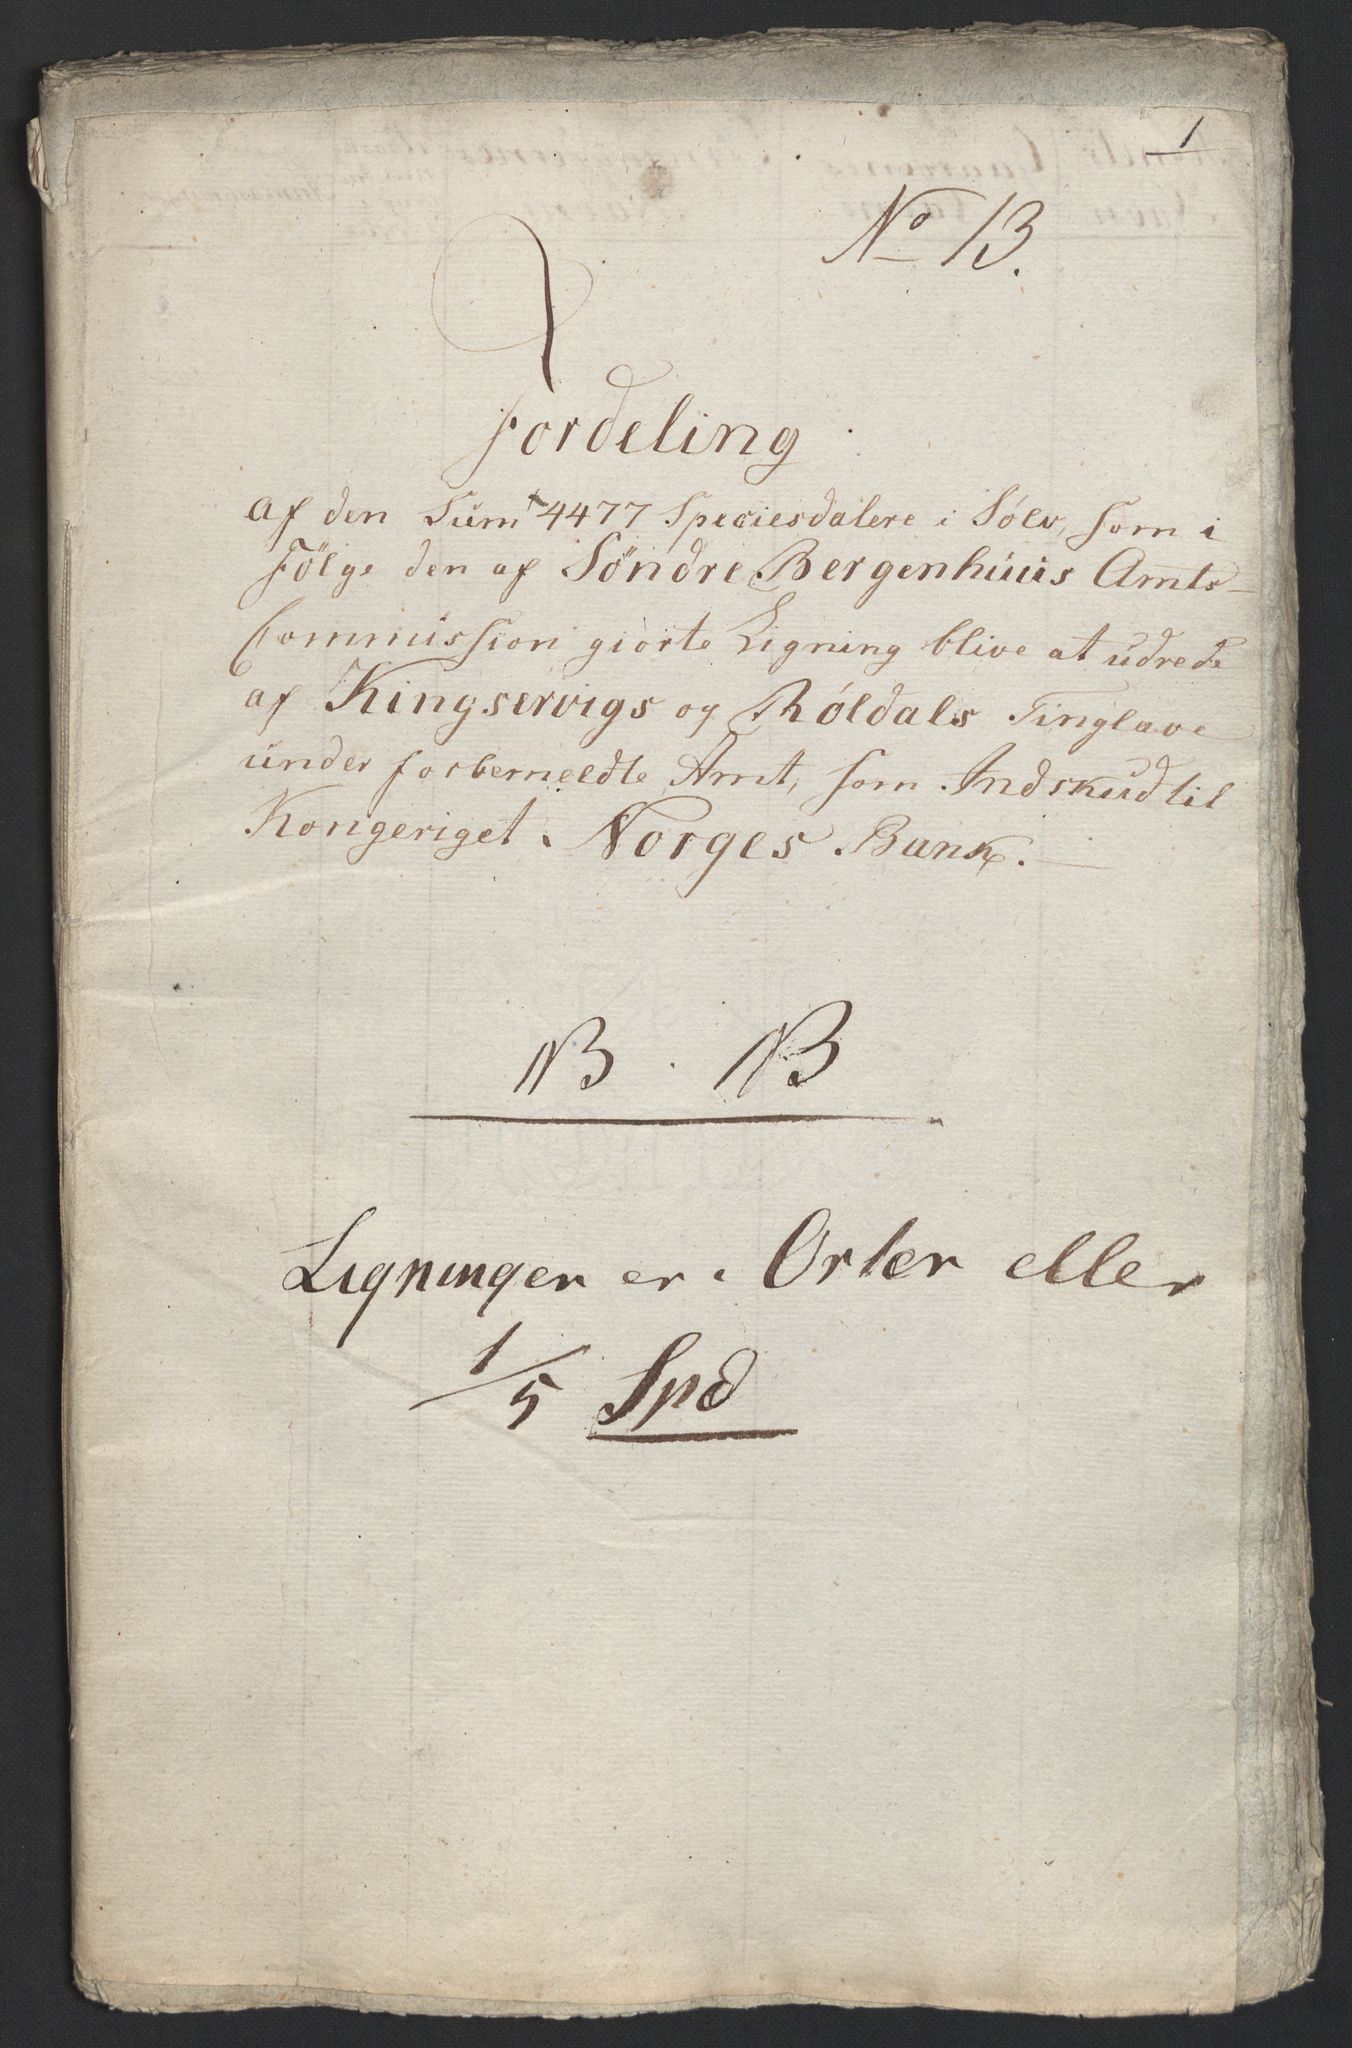 1
No 13.
Fordeling
af den Sum 4477 Speciesdalere i Sølv, som i
Følge den af Søndre Bergenhuus Amts-
Commission giorte Ligning blive at udrede
af Kingservigs og Röldals Tinglave
under forbemeldte Amt, som Indskud til
Kongeriget Norges Bank.
NB. NB
Ligningen er i Orter eller
1/5 Spd